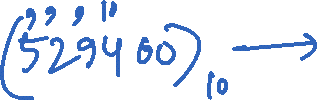 (529400)₁₀ →